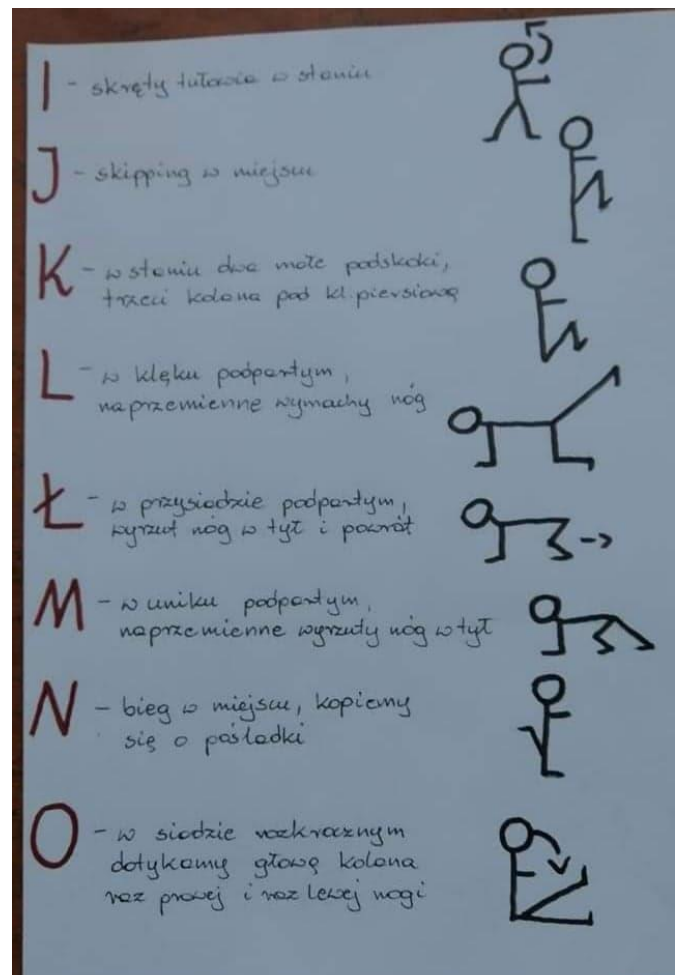 I - skręty tułowia w staniu
J - skipping w miejscu
K - w staniu dwa małe podskoki,
trzeci kolana pod kl. piersiową
L - w klęku podpartym,
naprzemienne wymachy nóg
Ł - w przysiadzie podpartym,
wyrzut nóg w tył i powrót
M - w uniku podpartym,
naprzemienne wyrzuty nóg w tył
N - bieg w miejscu, kopiemy
się o pośladki
O - w siadzie rozkrocznym
dotykamy głową kolana
raz prawej i raz lewej nogi